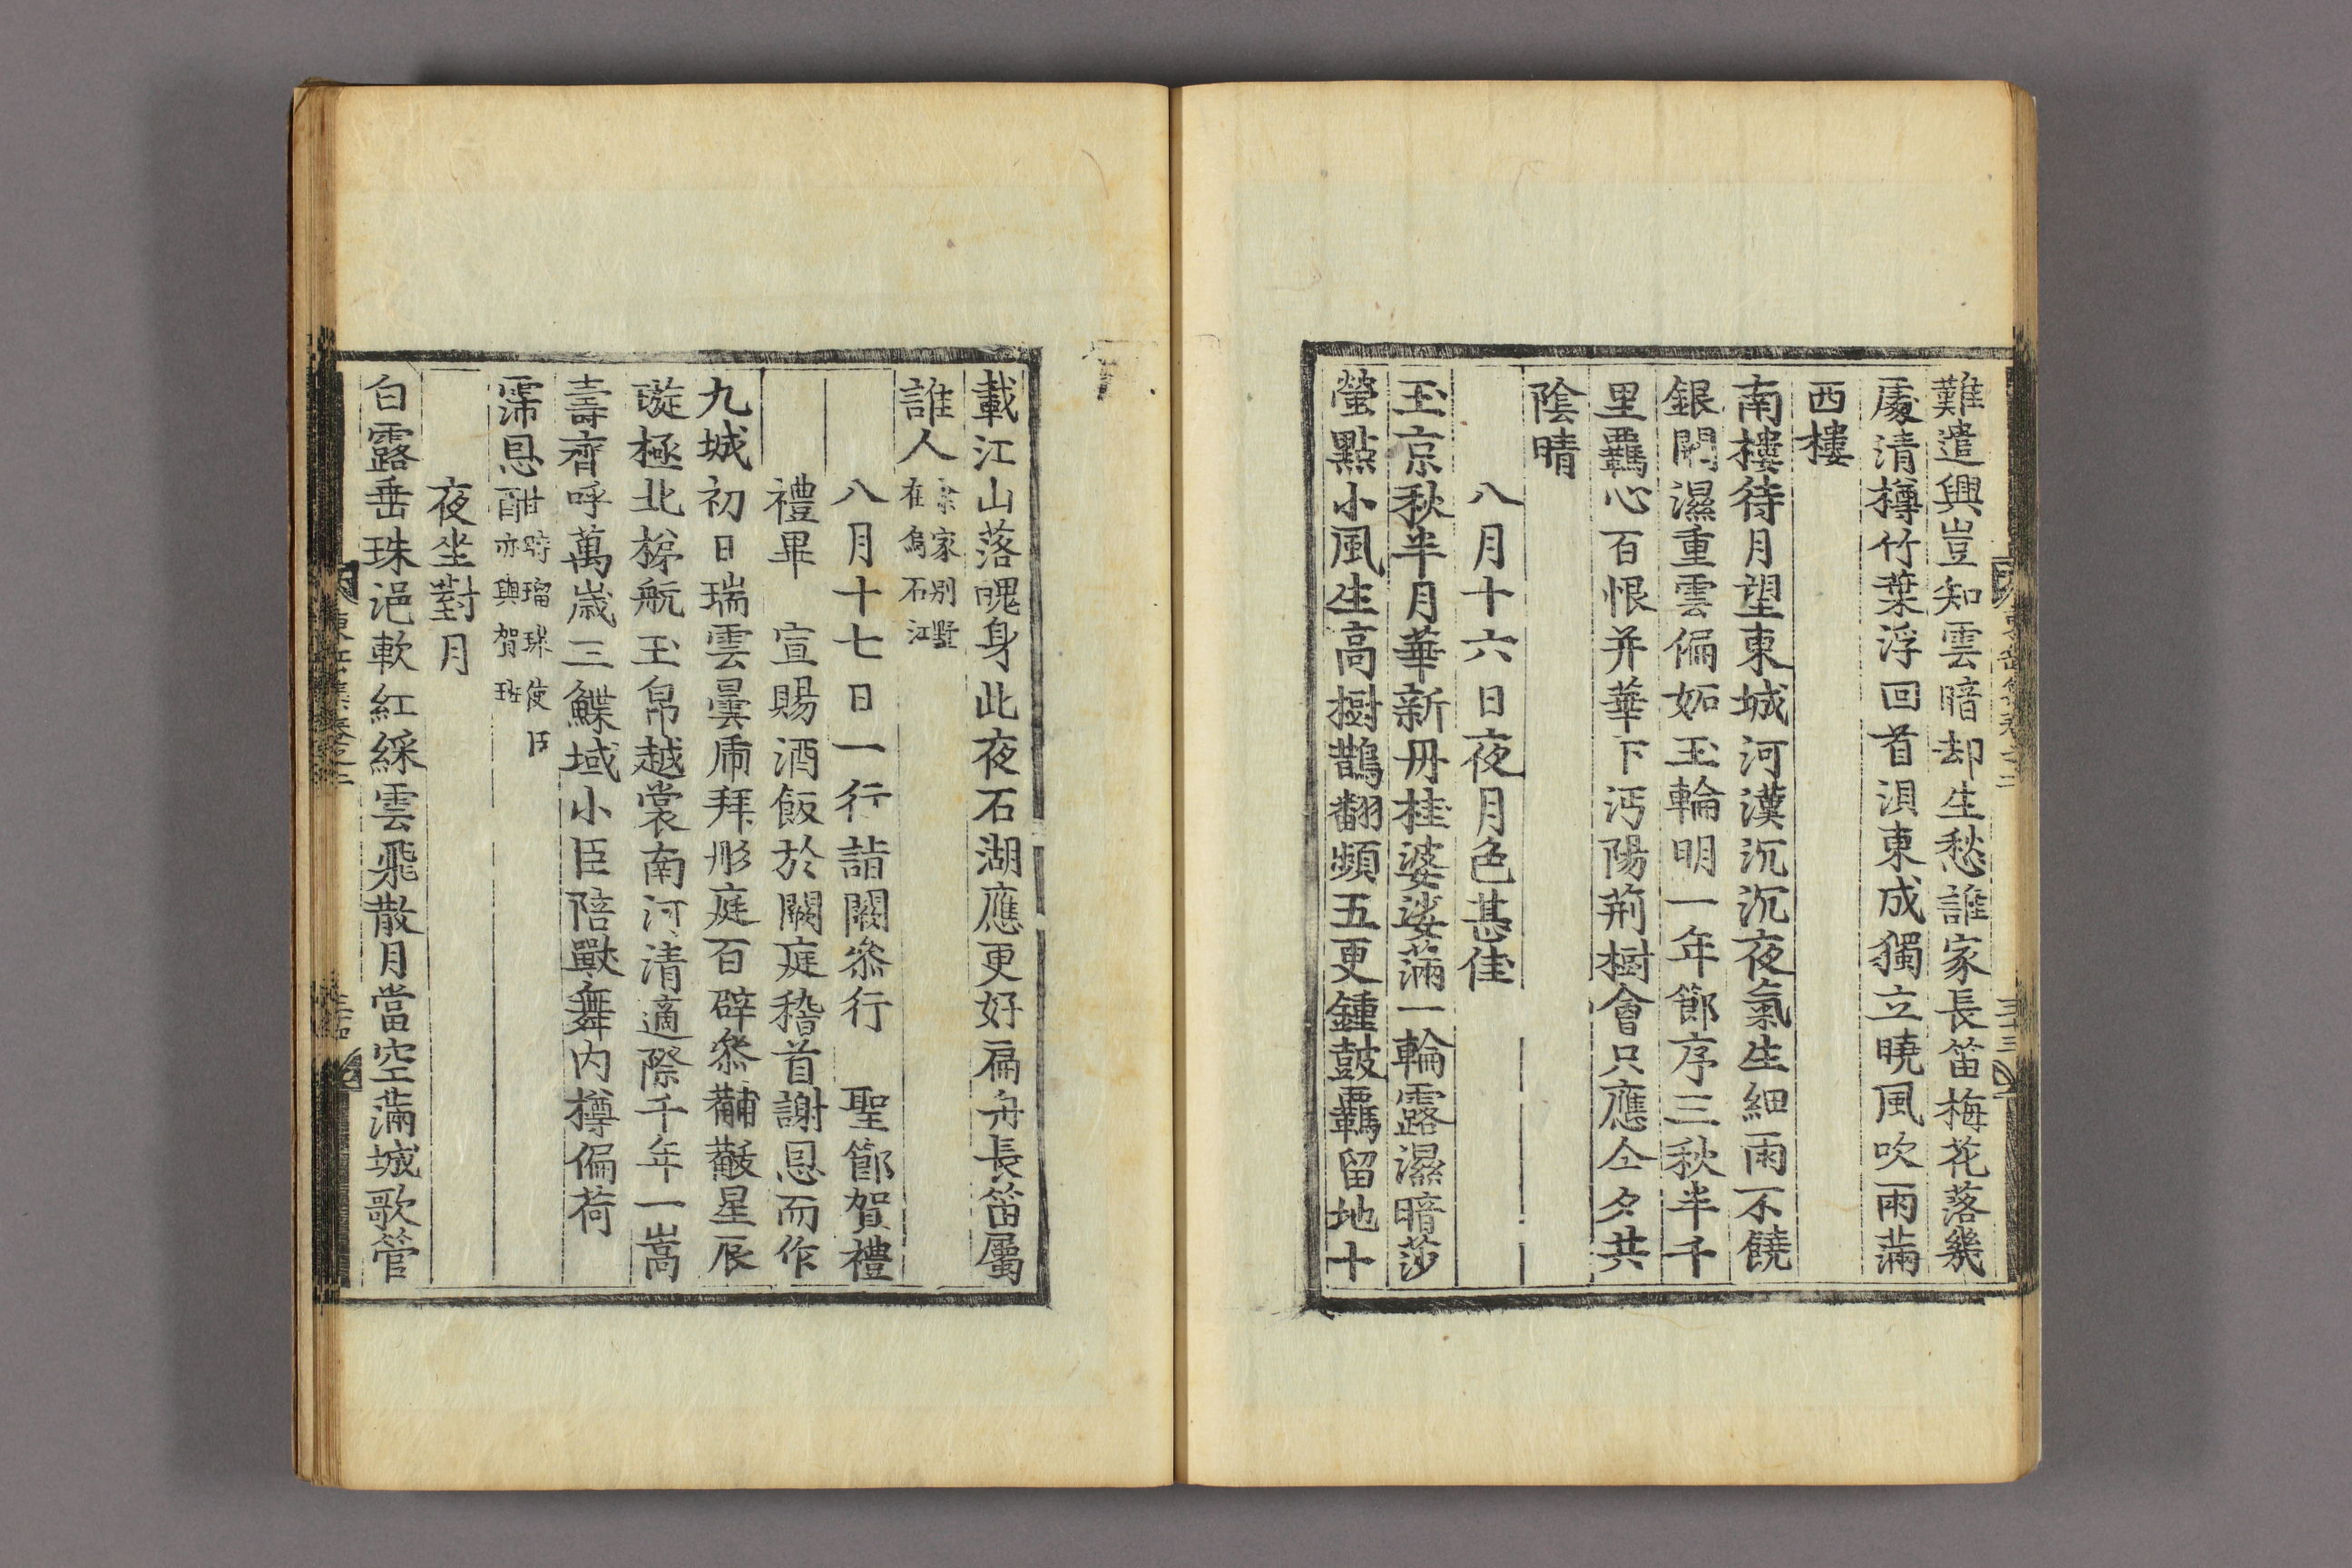 難遣興豈知雲暗却生愁誰家長笛梅花落幾
處清樽竹葉浮回首湏東成獨立曉風吹雨滿
西樓
南樓待月望東城河漢沉沉夜氣生細雨不饒
銀闕濕重雲偏妬玉輪明一年節序三秋半千
里羈心百恨并華下沔陽荊樹會只應仝夕共
陰晴
八月十六日夜月色甚佳
玉京秋半月華新丹桂婆娑滿一輪露濕暗莎
螢點小風生高樹鵲翻頻五更鍾鼓羈留地十
載江山落魄身此夜石湖應更好扁舟長笛屬
誰人
余家別墅
在烏石江
八月十七日一行詣闕叅行 聖節賀禮
禮畢 宣賜酒飯於闕庭稽首謝恩而作
九城初日瑞雲曇虎拜彤庭百辟叅黼黻星辰
璇極北梯航玉帛越裳南河清適際千年一嵩
壽齊呼萬歲三鰈域小臣陪獸舞內樽偏荷
霈恩酣
時瑠球使臣
亦與賀班
夜坐對月
白露垂珠浥軟紅綵雲飛散月當空滿城歌管